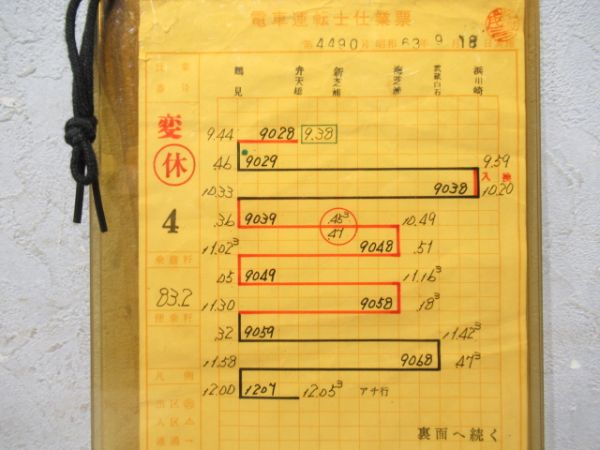 電車運転士仕業票
第4490号 昭和63年9月18日
鶴見 弁天橋 新芝浦 海芝浦 武蔵白石 浜川崎
変
休
4
乗務粁
83.2
便乗粁
凡例
9.44 9028 9.38
46 9029 9.59
入換
10.33 9038 10.20
.36 9039 .45³ 10.49
.47
11.02³ 9048 .51
.05 9049 11.16³
11.30 9058 .18³
.32 9059 11.42³
11.58 9068 .47³
12.00 1207 12.05³ アチ行
裏面へ続く